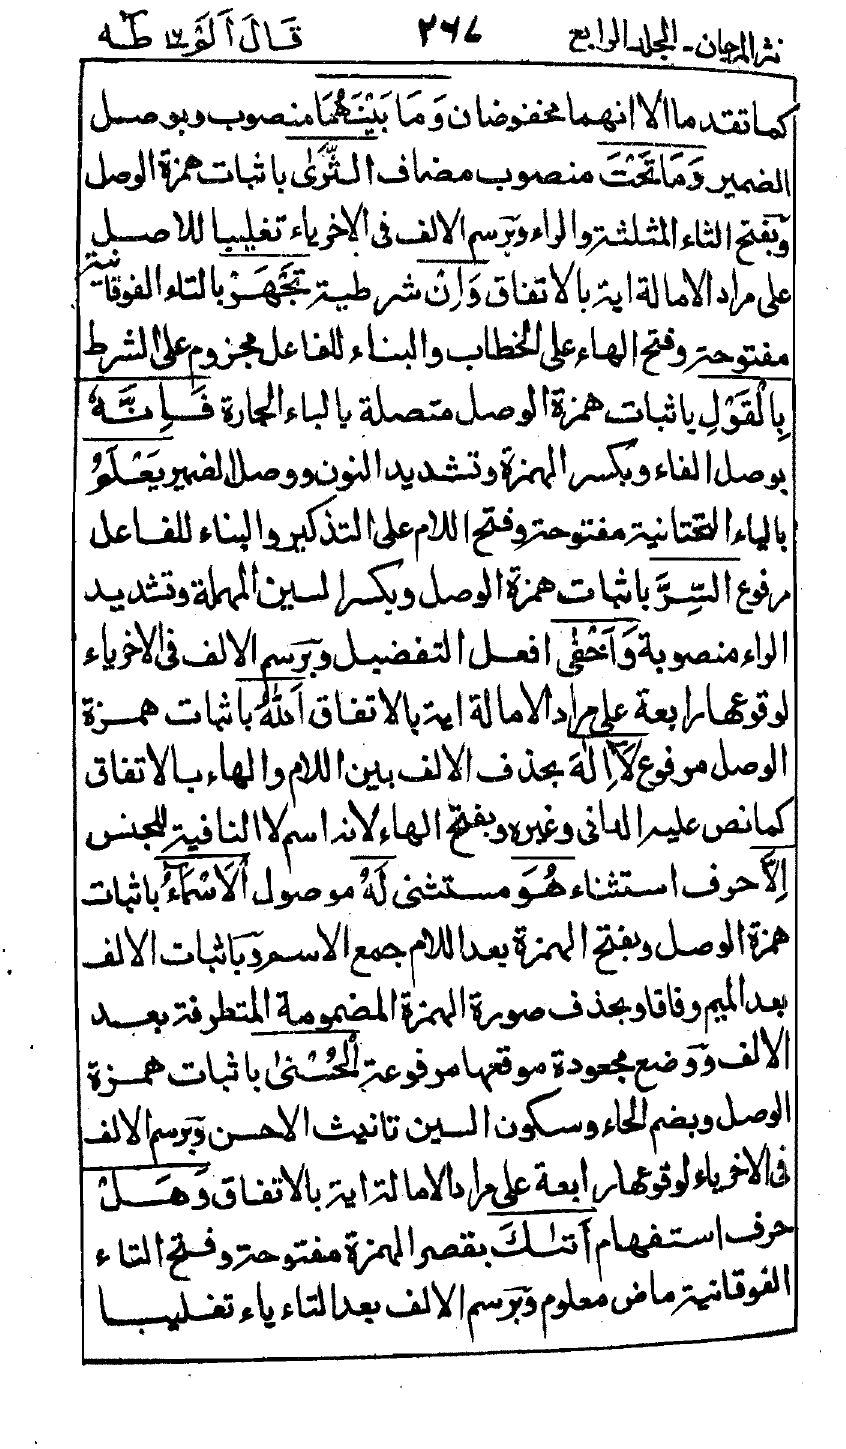 نثر المرجان - المجلد الرابع ٢٦٧ قَالَ أَلَمْ ١٦ طٰهٰ
كما تقدم الا انهما مخفوضان وَمَا بَيْنَهُمَا منصوب وبوصل
الضمير وَمَا تَحْتَ منصوب مضاف الثَّرٰى باثبات همزة الوصل
وبفتح الثاء المثلثة والراء وبرسم الالف فى الاخر ياء تغليبا للاصل
على مراد الامالة اية بالاتفاق وَاِنْ شرطية تَجْهَرْ بالتاء الفوقانية
مفتوحة وفتح الهاء على الخطاب والبناء للفاعل مجزوم على الشرط
بِالْقَوْلِ باثبات همزة الوصل متصلة بالباء الجارة فَاِنَّهٗ
بوصل الفاء وبكسر الهمزة وتشديد النون ووصل الضمير يَعْلَمُ
بالياء التحتانية مفتوحة وفتح اللام على التذكير والبناء للفاعل
مرفوع السِّرَّ باثبات همزة الوصل وبكسر السين المهملة وتشديد
الراء منصوبة وَاَخْفٰى افعل التفضيل وبرسم الالف فى الاخر ياء
لوقوعها رابعة على مراد الامالة اية بالاتفاق اَللّٰهُ باثبات همزة
الوصل مرفوع لَآ اِلٰهَ بحذف الالف بين اللام والهاء بالاتفاق
كما نص عليه الدانى وغيره وبفتح الهاء لانه اسم لا النافية للجنس
اِلَّا حرف استثناء هُوَ مستثنى لَهُ موصول الْاَسْمَآءُ باثبات
همزة الوصل وبفتح الهمزة بعد اللام جمع الاسم وباثبات الالف
بعد الميم وفاقا وبحذف صورة الهمزة المضمومة المتطرفة بعد
الالف ووضع مجعودة موقعها مرفوعة الْحُسْنٰى باثبات همزة
الوصل وبضم الحاء وسكون السين تانيث الاحسن وبرسم الالف
فى الاخر ياء لوقوعها رابعة على مراد الامالة اية بالاتفاق وَهَلْ
حرف استفهام اَتٰىكَ بقصر الهمزة مفتوحة وفتح التاء
الفوقانية ماض معلوم وبرسم الالف بعد التاء ياء تغليبا